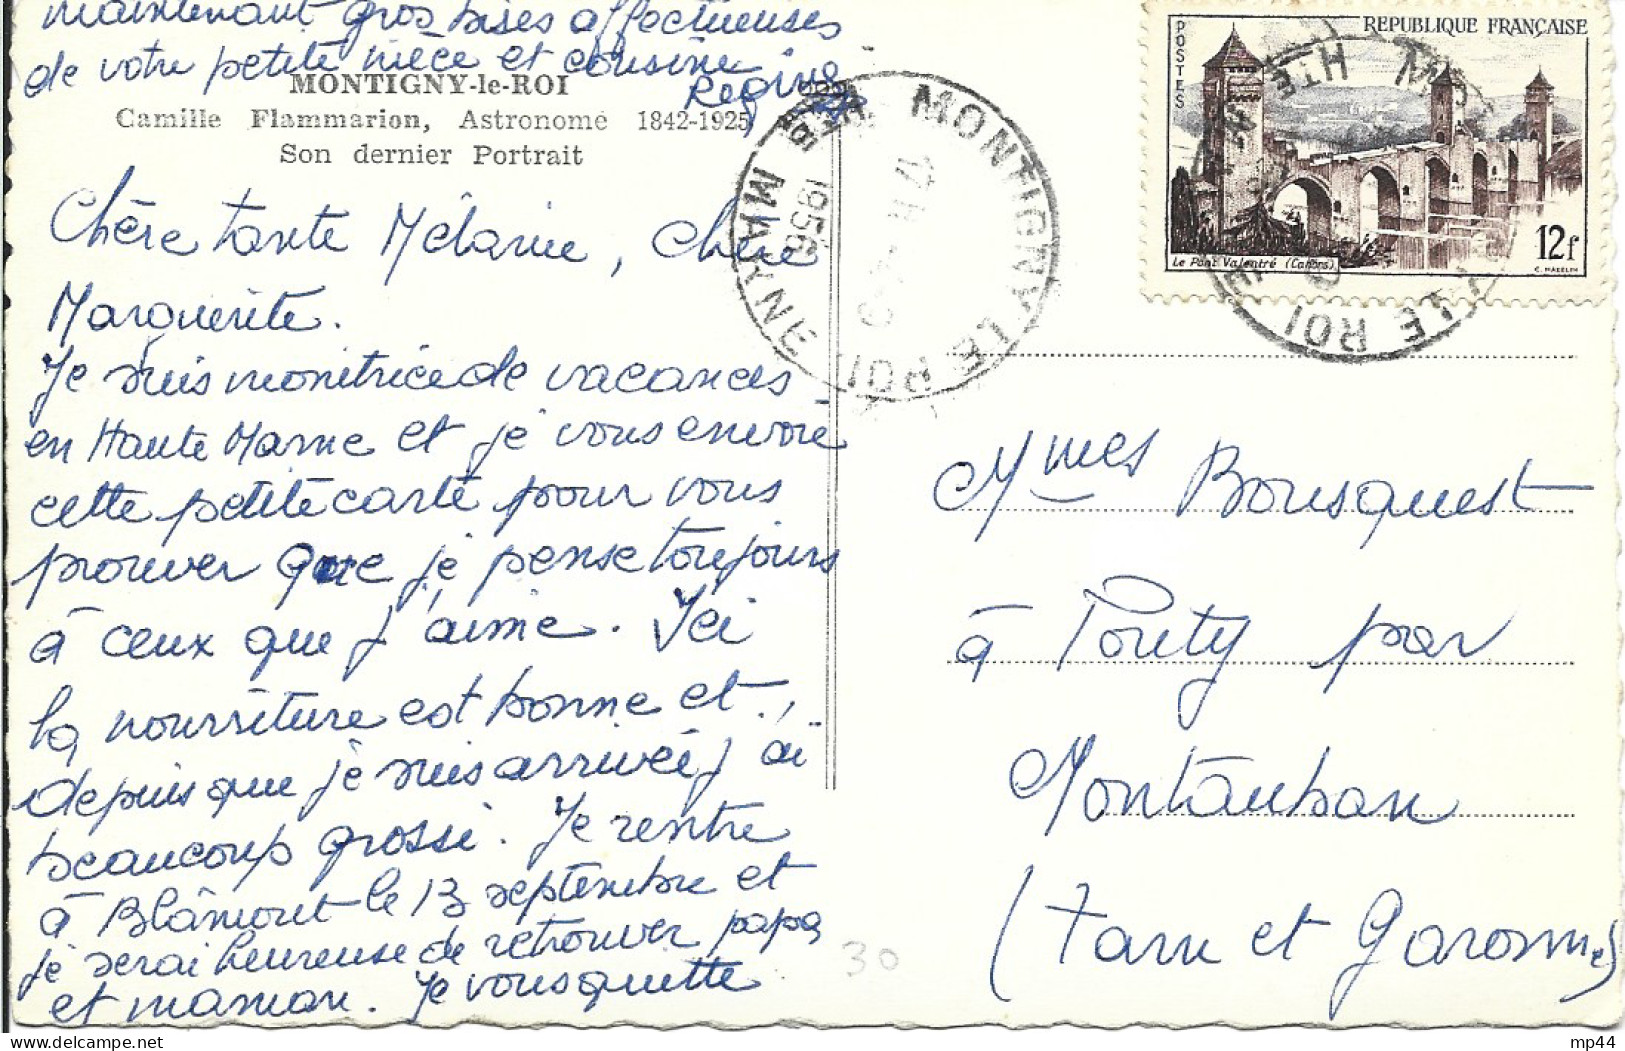 maintenant gros bises affectueuses
de votre petite nièce et cousine
Regine
MONTIGNY-le-ROI
Camille Flammarion, Astronome 1842-1925
Son dernier Portrait
Chère tante Mélanie, chère
Marguerite.
Je suis monitrice de vacances
en Haute Marne et je vous envoie
cette petite carte pour vous
prouver que je pense toujours
à ceux que j'aime. Ici
la nourriture est bonne et,
depuis que je suis arrivée j'ai
beaucoup grossi. Je rentre
à Blâmont le 13 septembre et
je serai heureuse de retrouver papa
et maman. Je vous quitte
MONTIGNY LE ROI
HTE MARNE
1956
POSTES
REPUBLIQUE FRANÇAISE
Le Pont Valentré (Cahors)
12f
C. MAZELIN
MONTIGNY LE ROI
HTE MARNE
Mmes Bousquest
à Pouty par
Montauban
(Tarn et Garonne)
30
mp44